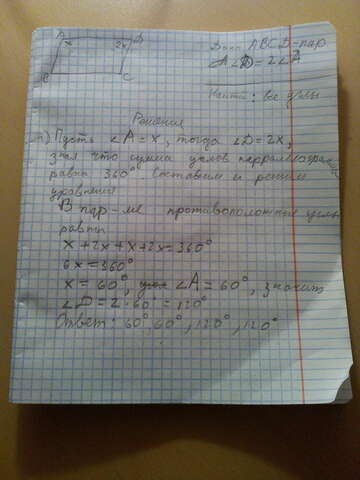 A
x
2x
D
B
C
Дано: ABCD=пар
∠D=2∠A
Найти: все углы
Решения
1) Пусть ∠A=x, тогда ∠D=2x,
зная что сумма углов
равна 360° составим и решим
уравнения
В пар-ме противоположные углы
равны
x+2x+x+2x=360°
6x=360°
x=60°, ∠A=60°, значит
∠D=2·60°=120°
Ответ: 60°, 60°, 120°, 120°